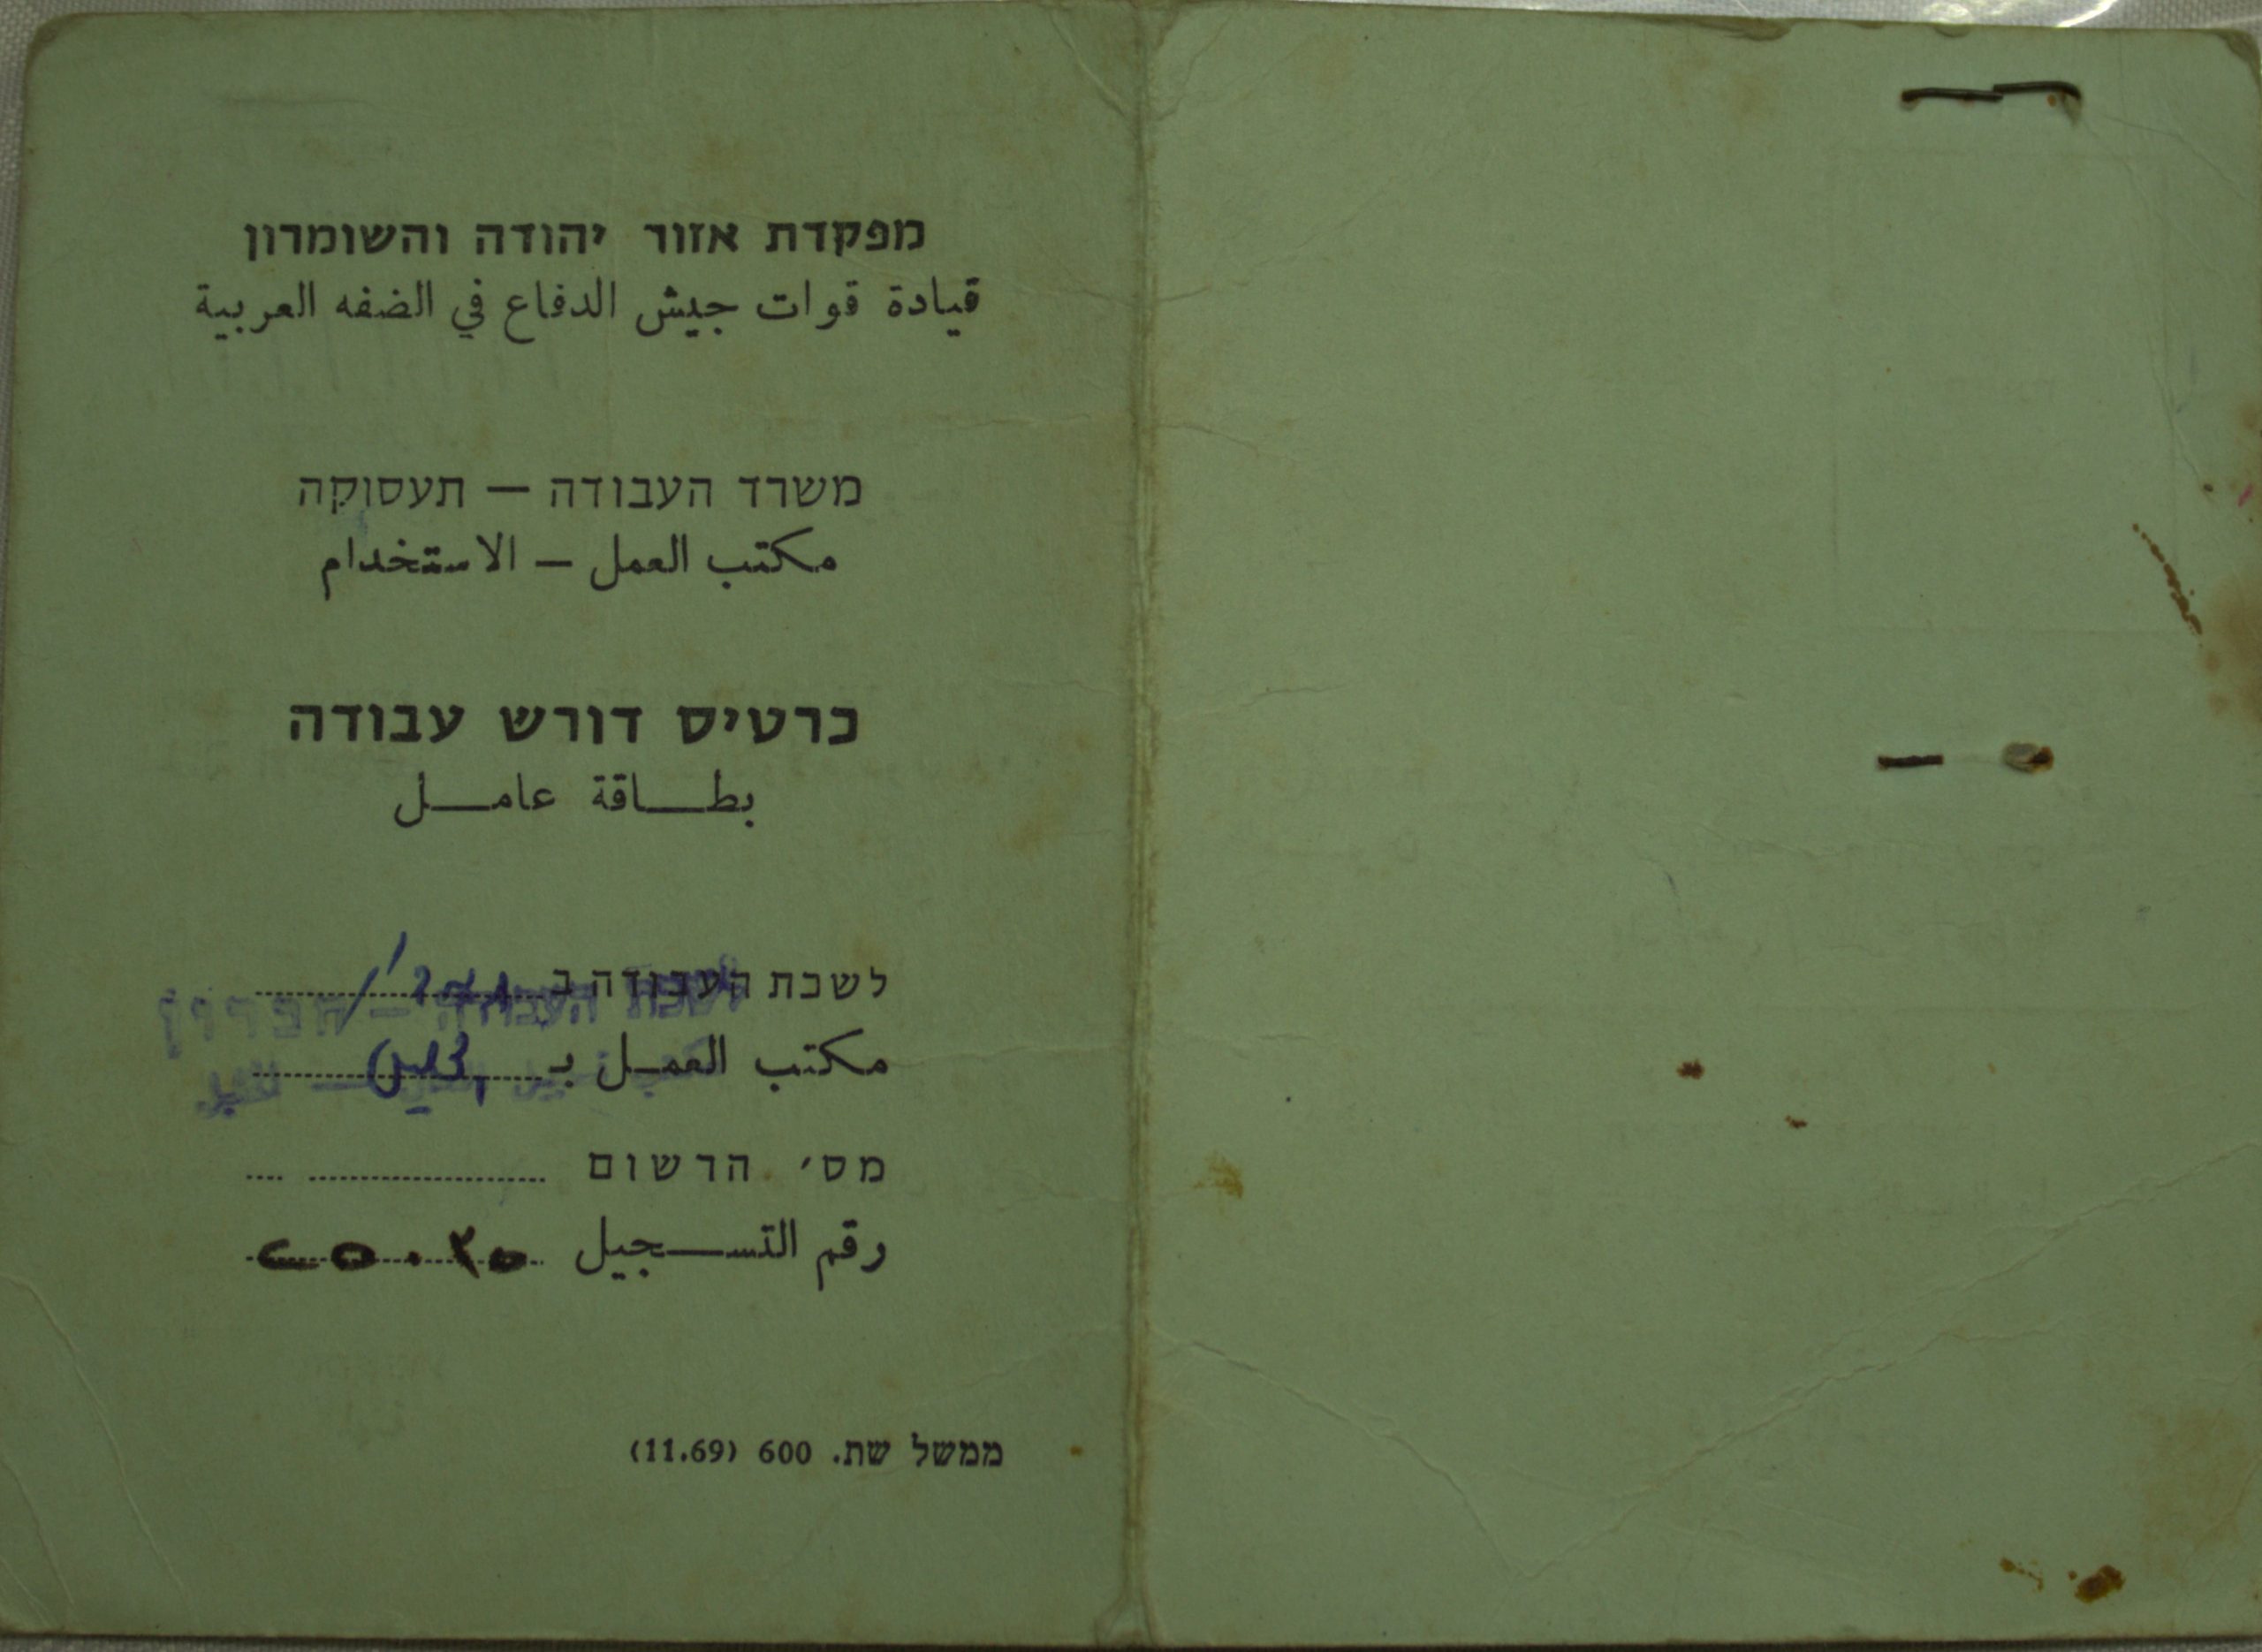 מפקדת אזור יהודה והשומרון
قيادة قوات جيش الدفاع في الضفه العربية
משרד העבודה — תעסוקה
مكتب العمل — الاستخدام
כרטיס דורש עבודה
بطاقة عامل
לשכת העבודה ב
לשכת העבודה - חברון
مكتب العمل بـ
מס' הרשום
رقم التسجيل
ממשל שת. 600 (11.69)